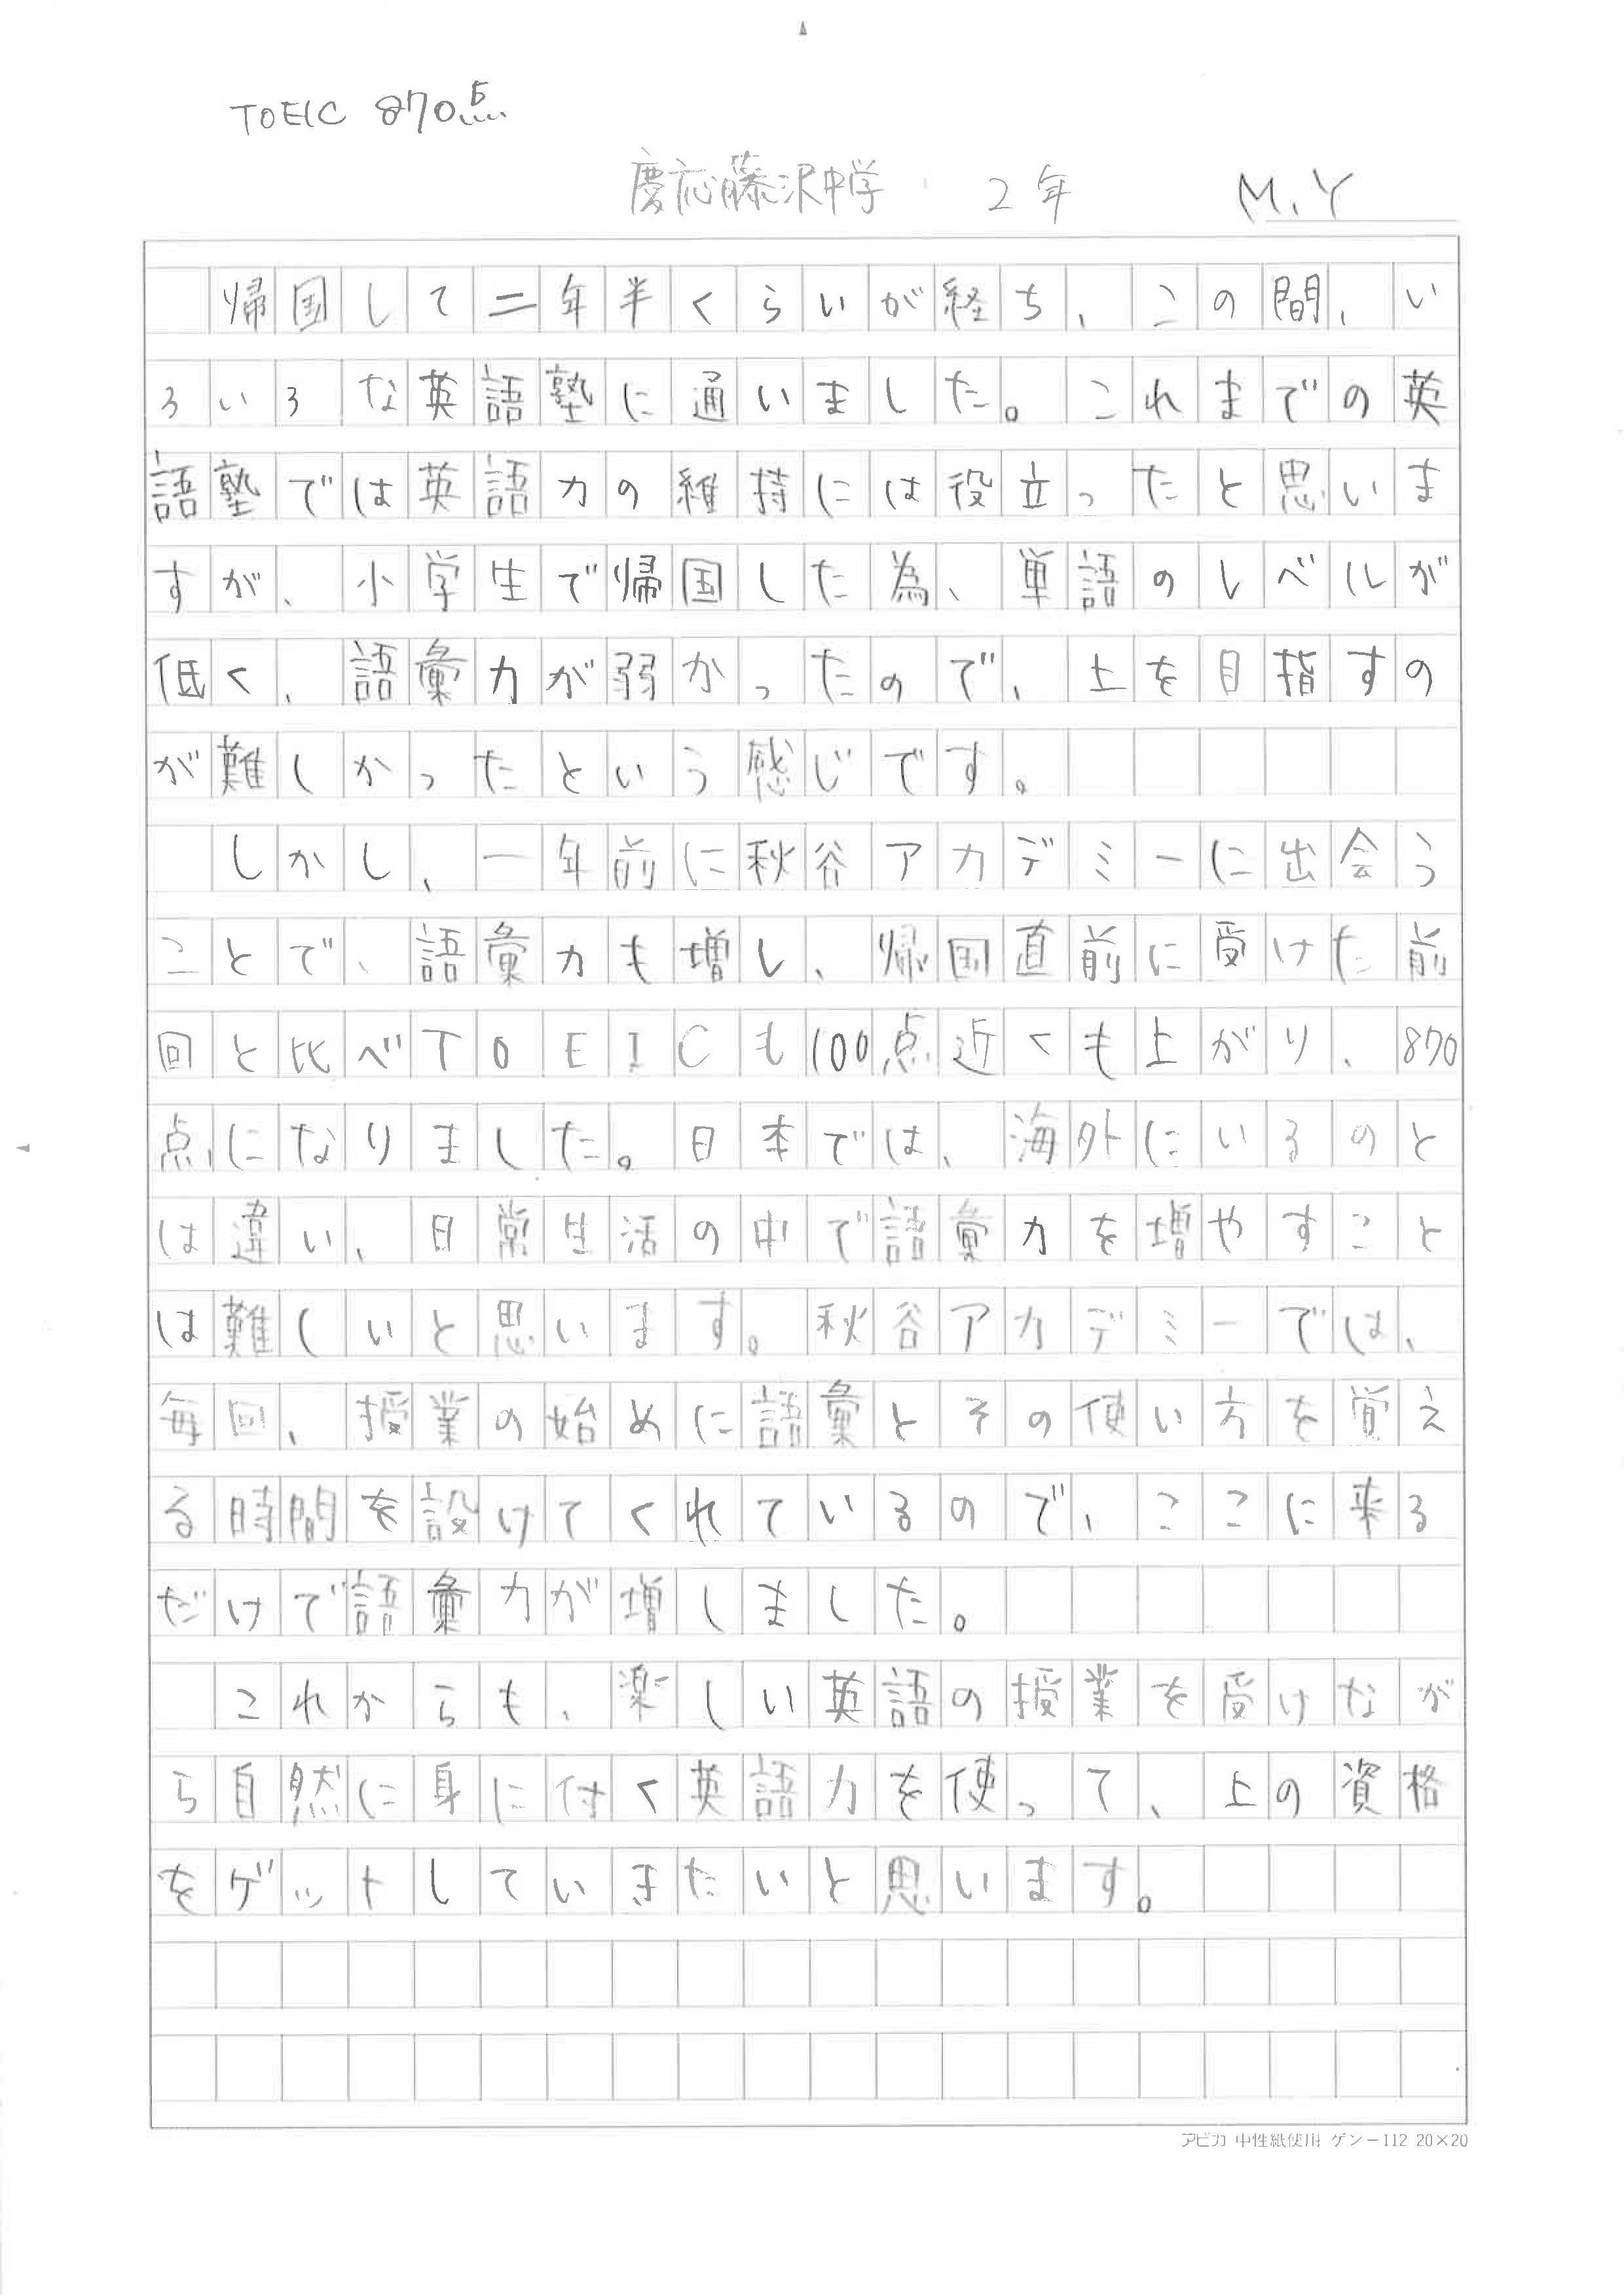 TOEIC 870点
慶応藤沢中学 2年 M.Y
帰国して二年半くらいが経ち、この間、い
ろいろな英語塾に通いました。これまでの英
語塾では英語力の維持には役立ったと思いま
すが、小学生で帰国した為、単語のレベルが
低く、語彙力が弱かったので、上を目指すの
が難しかったという感じです。
しかし、一年前に秋谷アカデミーに出会う
ことで、語彙力も増し、帰国直前に受けた前
回と比べTOEICも100点近くも上がり、870
点になりました。日本では、海外にいるのと
は違い、日常生活の中で語彙力を増やすこと
は難しいと思います。秋谷アカデミーでは、
毎回、授業の始めに語彙とその使い方を覚え
る時間を設けてくれているので、ここに来る
だけで語彙力が増しました。
これからも、楽しい英語の授業を受けなが
ら自然に身に付く英語力を使って、上の資格
をゲットしていきたいと思います。
アピカ 中性紙使用 ゲンー112 20×20